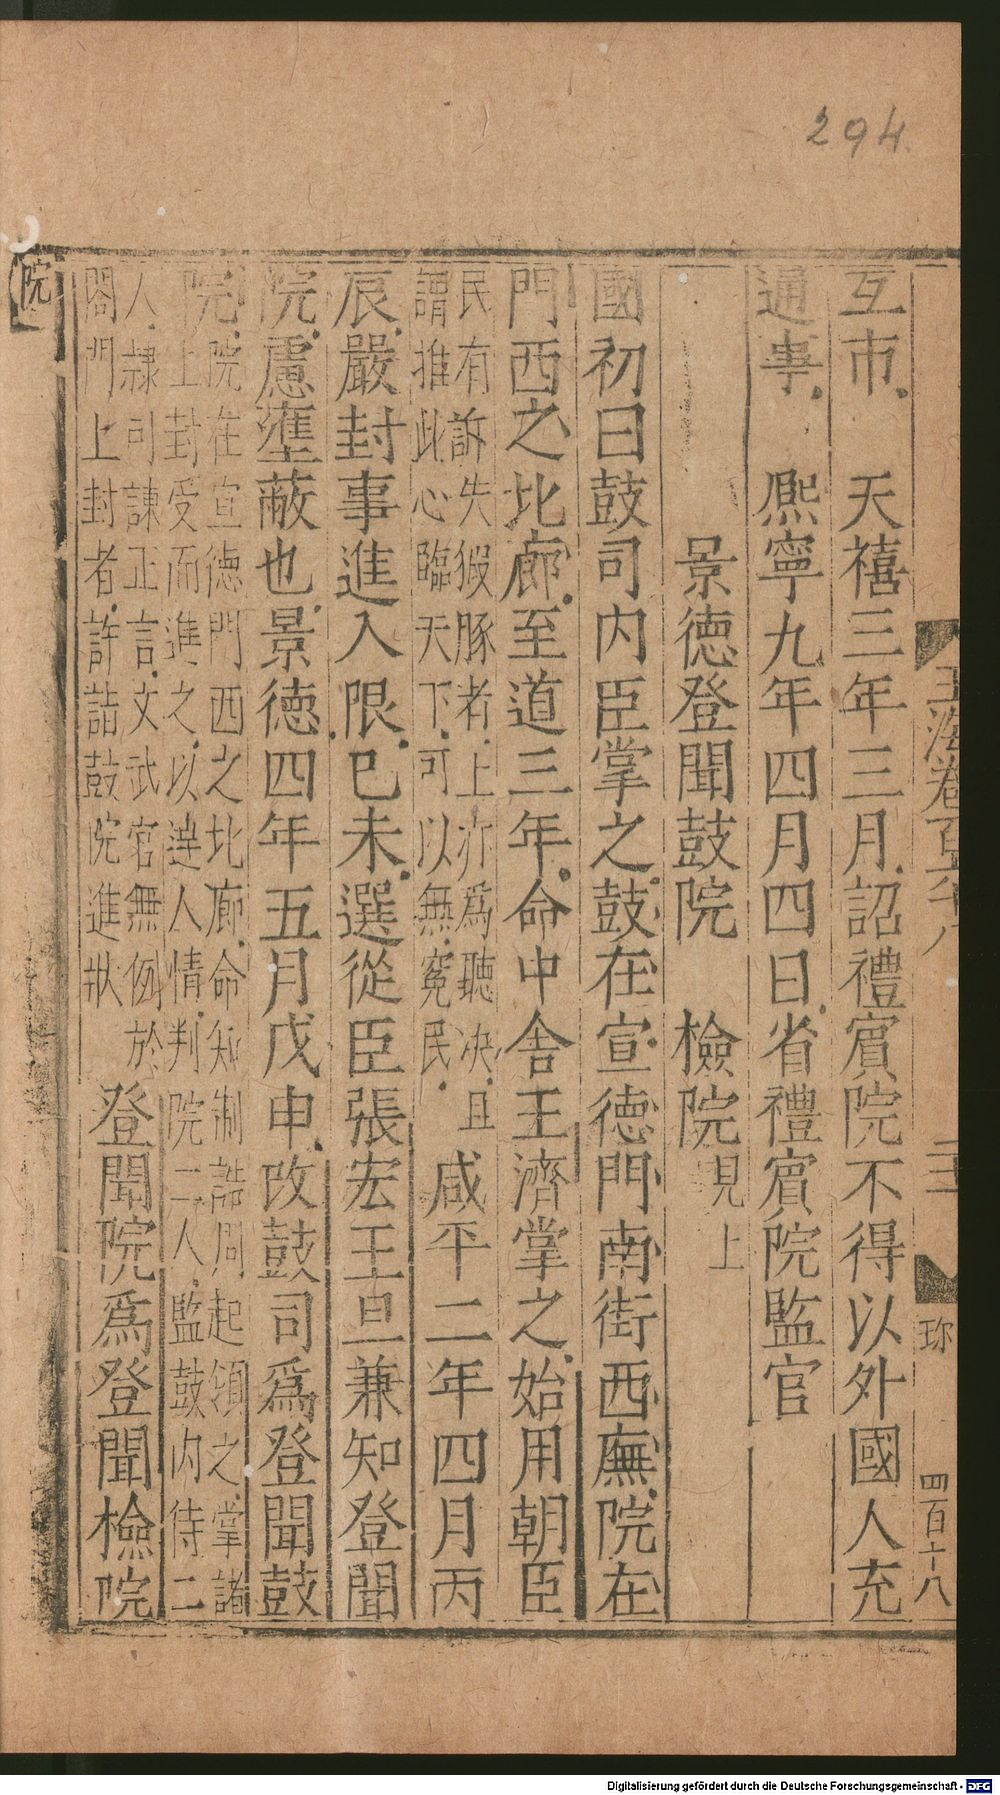 294.
互市 天禧三年三月詔禮賓院不得以外國人充
通事 熈寧九年四月四日省禮賓院監官
景德登聞鼓院 檢院見上
國初曰鼓司内臣掌之鼓在宣德門南街西廡院在
門西之北廊至道三年命中舎王濟掌之始用朝臣
民有訴失猳豚者上亦爲聽决且
謂推此心臨天下可以無寃民
咸平二年四月丙
辰嚴封事進入限已未選從臣張宏王旦兼知登聞
院慮壅蔽也景徳四年五月戊申改鼓司爲登聞鼓
院院在宣德門西之北廊命知制誥周起領之掌諸
上封受而進之以達人情判院二人監鼓内侍二
人隷司諫正言文武官無例於
閤門上封者許詣鼓院進狀
登聞院爲登聞檢院
院
玉海卷百六八
珎
四百十八
Digitalisierung gefördert durch die Deutsche Forschungsgemeinschaft - DFG